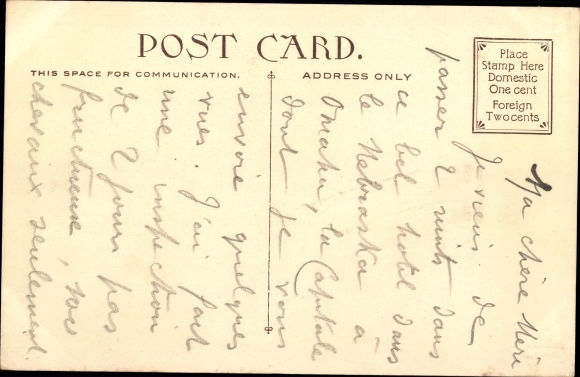 POST CARD.
THIS SPACE FOR COMMUNICATION.
ADDRESS ONLY
Place
Stamp Here
Domestic
One cent
Foreign
Two cents
Ma chère Meri
Je viens de
passer 2 nuits dans
ce bel hotel dans
le Nebraska à
Omaha, la Capitale
dont je vous
envoie quelques
vues. J'ai fait
une inspection
de 2 jours pas
fructueuse, 
chevaux seulement.